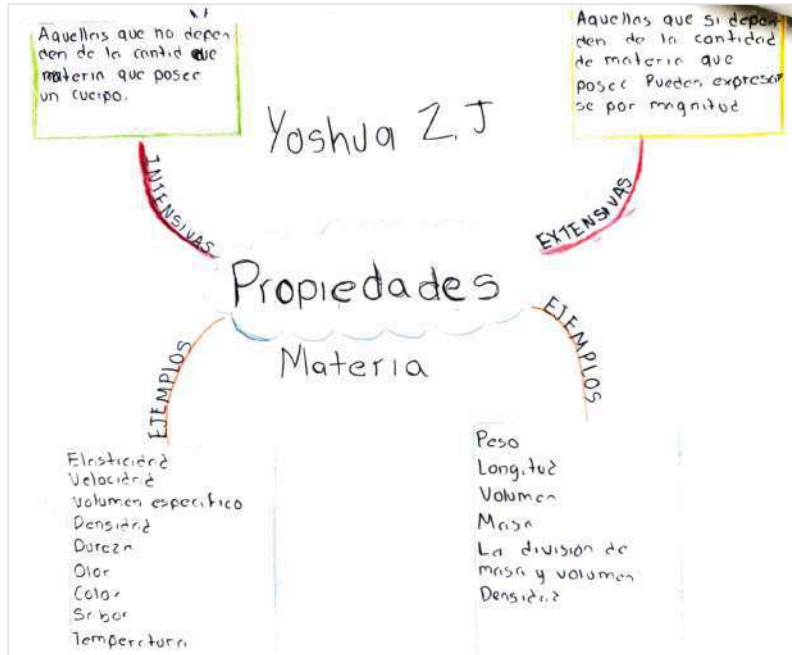 Aquellas que no depen
den de la cantid que
materia que posee
un cuerpo.
Aquellas que si depen
den de la cantidad
de materia que
posee Pueden expresar
se por magnitud
Yoshua Z.J
INTENSIVAS
EXTENSIVAS
Propiedades
Materia
EJEMPLOS
EJEMPLOS
Elasticidad
Velocidad
Volumen especifico
Densidad
Dureza
Olor
Color
Sabor
Temperatura
Peso
Longitud
Volumen
Masa
La división de
masa y volumen
Densidad